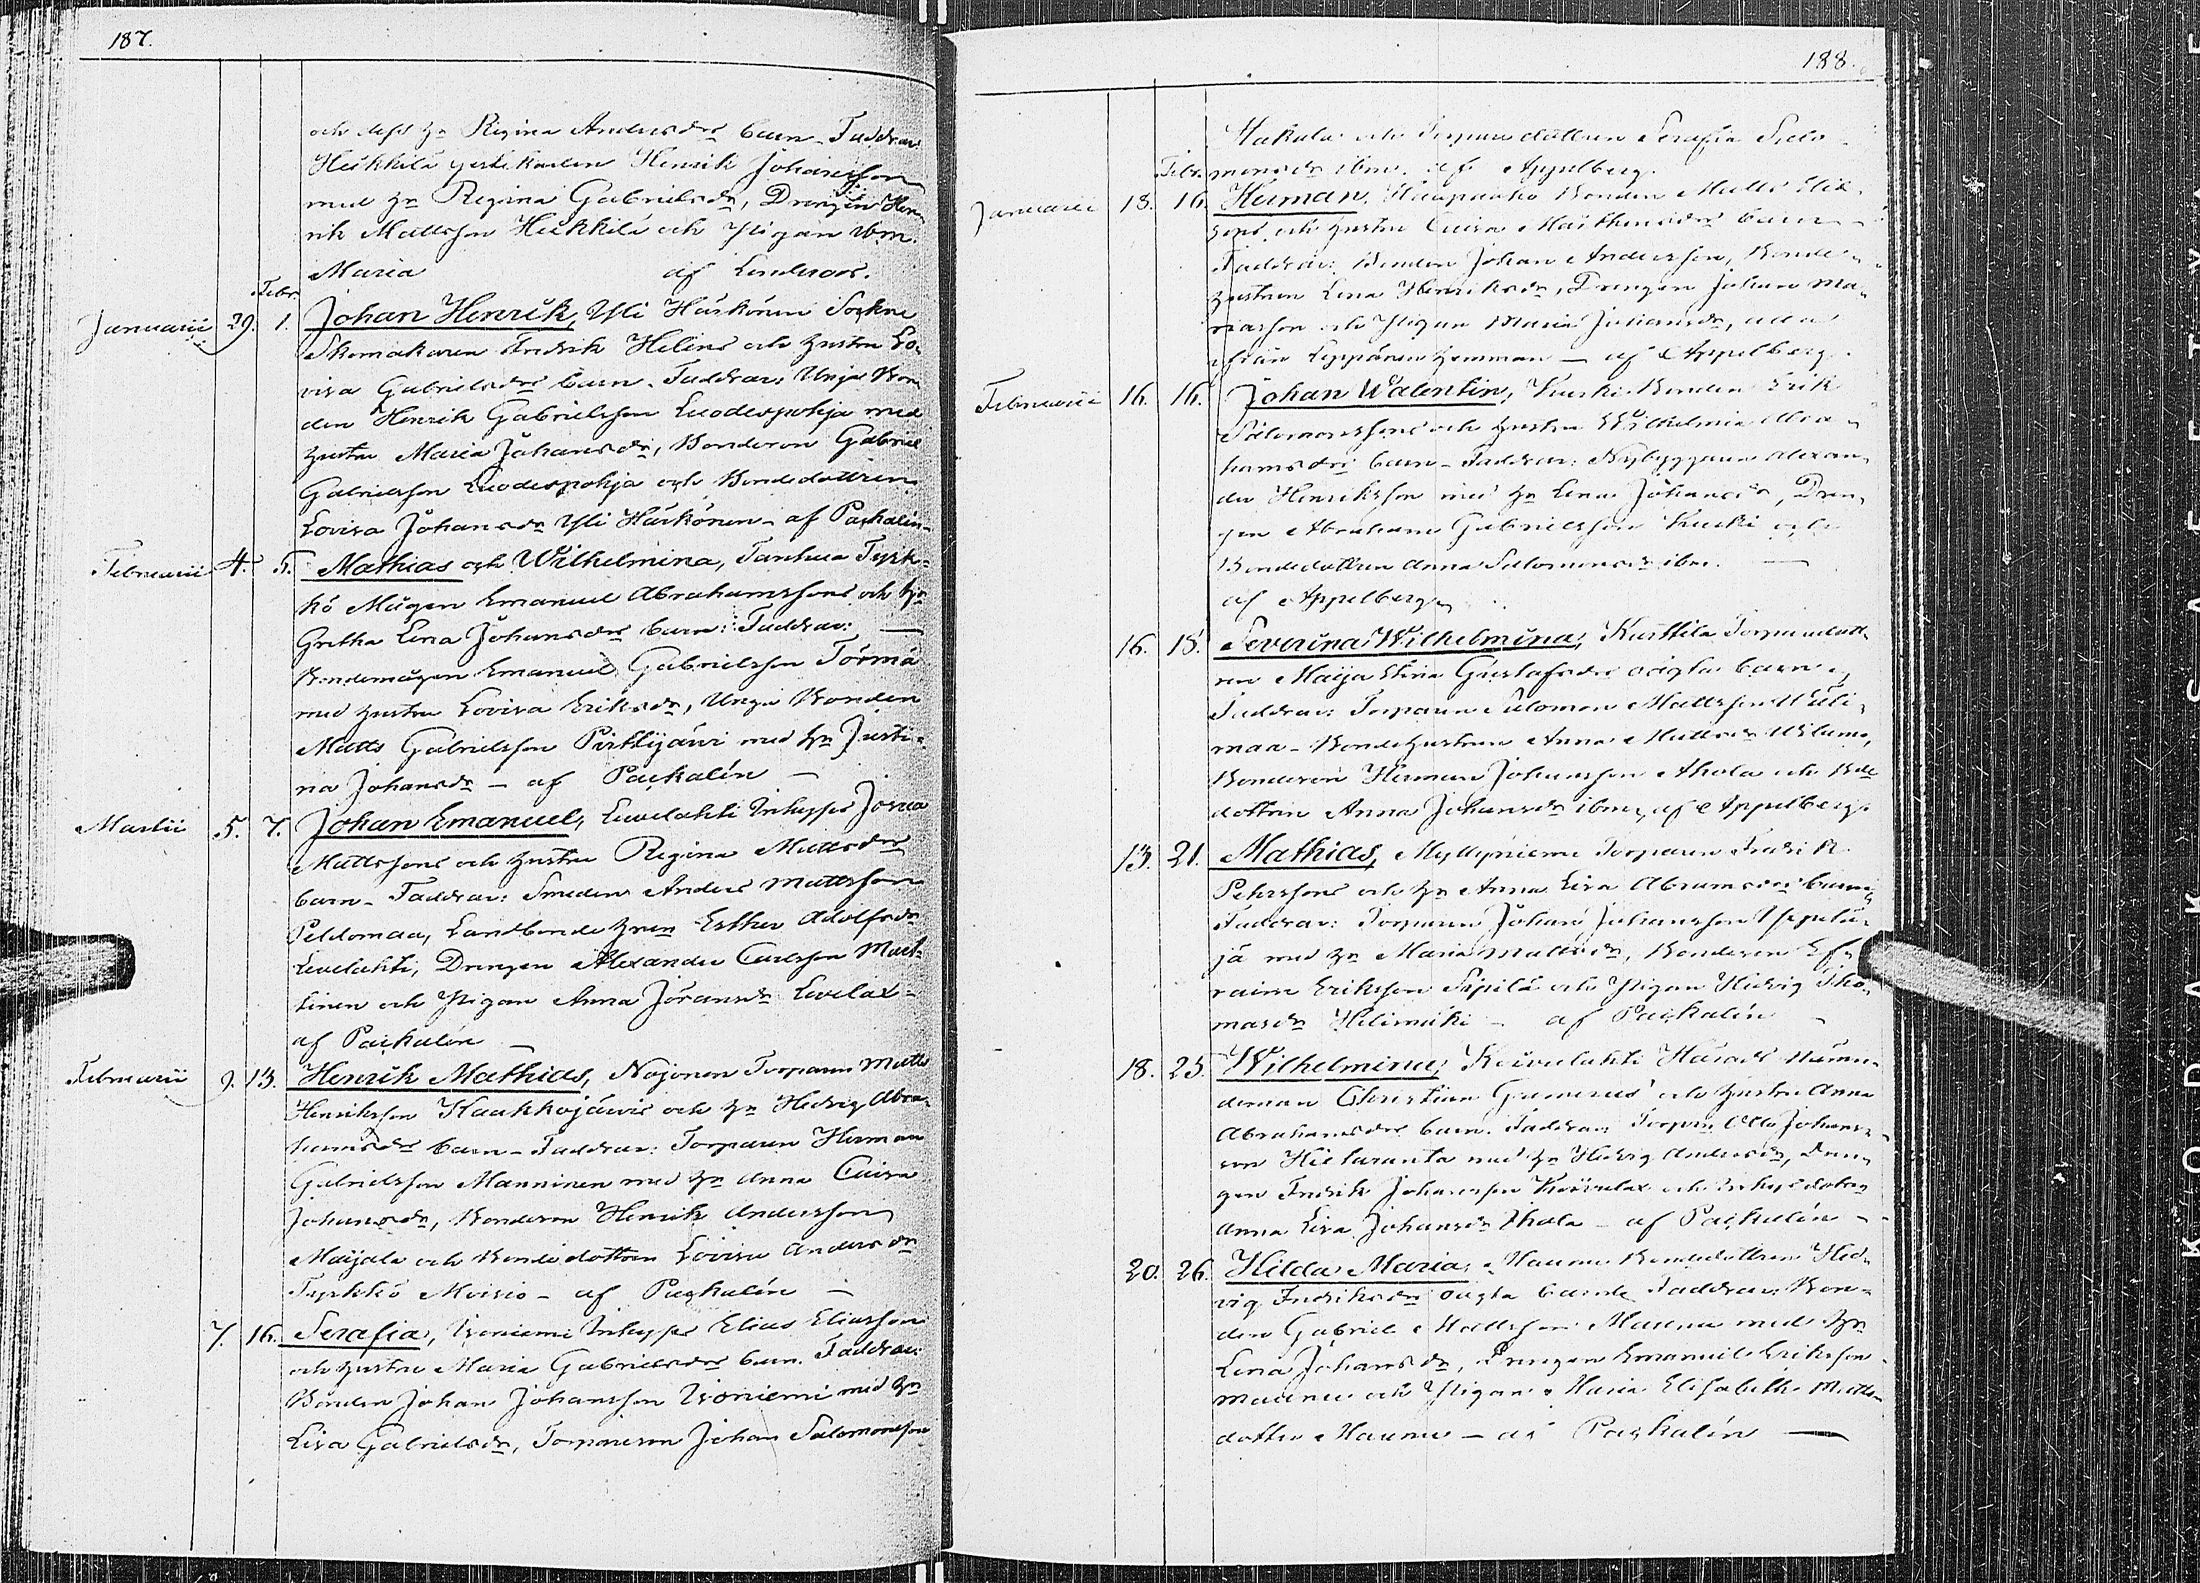 187.
och dess h:u Regina Andersdrs barn. Faddrar
Heikkilä gestikarlen Henrik Johansson
med h:u Regina Gabrielsdr, Drengen Hen
rik Mattsson Heikkilä och Pigan ibm.
Maria af Lindroos.
Febr.
Januarii 29. 1. Johan Henrik, Yli Härkönen Sockne
Skomakaren Fredrik Helins och hustru Lo,
visa Gabrielsdrs barn. Faddrar: Unga Bon
den Henrik Gabrielsson Luodespohja med
hustru Maria Johansdr, Bondeson Gabriel
Gabrielsson Luodespohja och Bondedottren
Lovisa Johansdr Yli Härkönen - af Paskalin
Februarii 4. 5. Mathias och Wilhelmina, Tanhua Tyrk-
kö Mågen Emanuel Abrahamssons och h:u
Gretha Lena Johansdrs barn: Faddrar: —
Bondemågen Emanuel Gabrielsson Törmä
med hustru Lovisa Eriksdr, Unga Bonden
Matts Gabrielsson Pirttijärvi med h:u Justi-
na Johansdr - af Paskalin —
Martii 5. 7. Johan Emanuel, Luvelahti Inhyses Josua
Mattssons och hustru Regina Mattsdrs
barn - Faddrar: Smeden Anders Mattsson
Peldomaa, Landbonde h:run Esther Adolfsdr
Luvelahti, Drengen Alexander Carlsson Mart-
tinen och Pigan Anna Göransdr Luvelax -
af Paskalin —
Februarii 9. 13. Henrik Mathias, Nojonen Torparen Matts
Henriksson Kaakkojärvis och h:u Hedvig Abra-
hamsdrs barn - Faddrar: Torparen Herman
Gabrielsson Manninen med h:u Anna Caisa
Johansdr, Bondeson Henrik Andersson
Maijala och Bondedottren Lovisa Andersdr
Tyrkkö Moisio - af Paskalin —
7. 16. Serafia, Isoniemi Inhyses Elias Eliasson
och hustru Maria Gabrielsdrs barn. Faddrar
Bonden Johan Johansson Isoniemi med h:u
Lisa Gabrielsdr, Torpareson Johan Salomonsson
188.
Hakala och Torparedottren Serafia Salo
Febr. monsdr ibm. af Appelberg.
Januarii 18. 16. Herman, Haapanko Bonden Matts Erik
sons och hustru Caisa Marthensdrs barn -
Faddrar: Bonden Johan Andersson, Bonde
hustrun Lena Henriksdr, Drengen Johan Ma-
riasson och Pigan Maria Johansdr, alla
från Leppänen hemman — af Appelberg.
Februarii 16. 16. Johan Walentin, Kuoski Bonden Erik
Salomonssons och hustru Wilhelmina Abra
hamsdrs barn - Faddrar: Nybyggaren Alexan,
der Henriksson med h:u Lena Johansdr, Dren,
gen Abraham Gabrielsson Kuoki och
Bondedottren Anna Salomonsdr ibm. —
af Appelberg
16. 18. Severina Wilhelmina, Kurttila Torparedott-
ren Maija Stina Gustafsdrs oägta barn -
Faddrar: Torparen Salomon Mattsson Wäli-
maa - Bondehustrun Anna Mattsdr
Bondeson Herman Johansson Ahola och Bde
dottren Anna Johansdr ibm, af Appelberg.
13. 21. Mathias, Myllyniemi Torparen Fredrik
Pehrssons och h:u Anna Lisa Abramsdrs barn,
Faddrar: Torparen Johan Johansson
jä med h:u Maria Mattsdr, Bondeson Ef-
raim Eriksson Sipilä och Pigan Hedvig Tho-
masdr Hilimäki - af Paskalin -
18. 25. Wilhelmina, Koivulahti Härads Nämn-
deman Christian Gumerus och hustru Anna
Abrahamsdrs barn. Faddrar: Torparen Otto Johans-
son Hietaranta med h:u Hedvig Andersdr, Dren-
gen Fredrik Johansson Koivulax och Inhysesdotren
Anna Lisa Johansdr Ahola - af Paskalin -
20. 26. Hilda Maria, Maunu Bondedottren Hed-
vig Fredriksdrs oägta barn. Faddrar: Bon-
den Gabriel Mattsson Maunu med h:u
Lena Johansdr, Drengen Emanuel Eriksson
Maunu och Pigan Maria Elisabeth Matts-
dotter Maunu — af Paskalin —
KODAK SAFETY